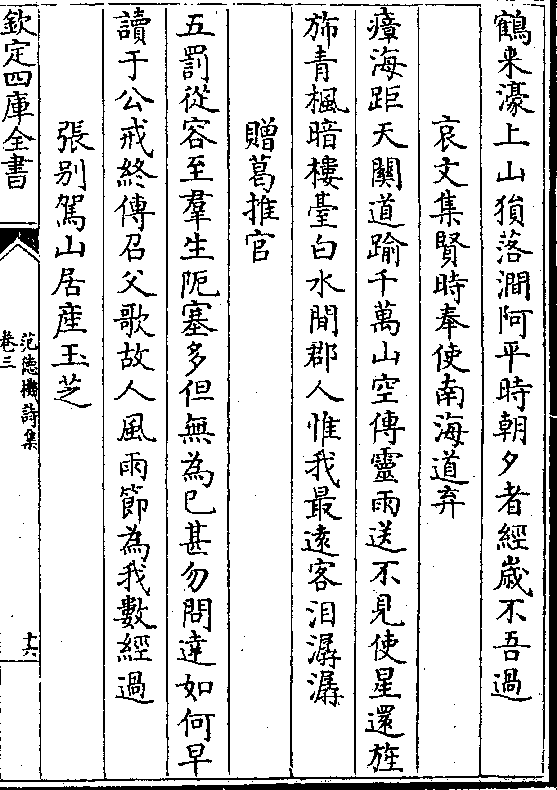 鶴来濠上山猿落澗阿平時朝夕者經歳不吾過
哀文集賢時奉使南海道弃
瘴海距天關道踰千萬山空傳靈雨送不見使星還旌
斾青楓暗樓臺白水間郡人惟我最遠客泪潺潺
贈葛推官
五罰從容至羣生阨塞多但無為已甚勿問達如何早
讀于公戒終傳召父歌故人風雨節為我數經過
張别駕山居産玉芝
欽定四庫全書
范德機詩集
卷三
十六